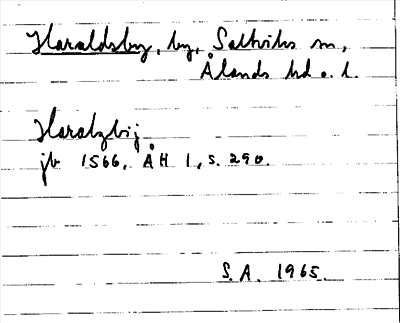 Haraldsby, by, Saltviks sn,
Ålands hd o. l.
Haralzbij
jb 1566, ÅH 1, s. 290.
S.A. 1965.